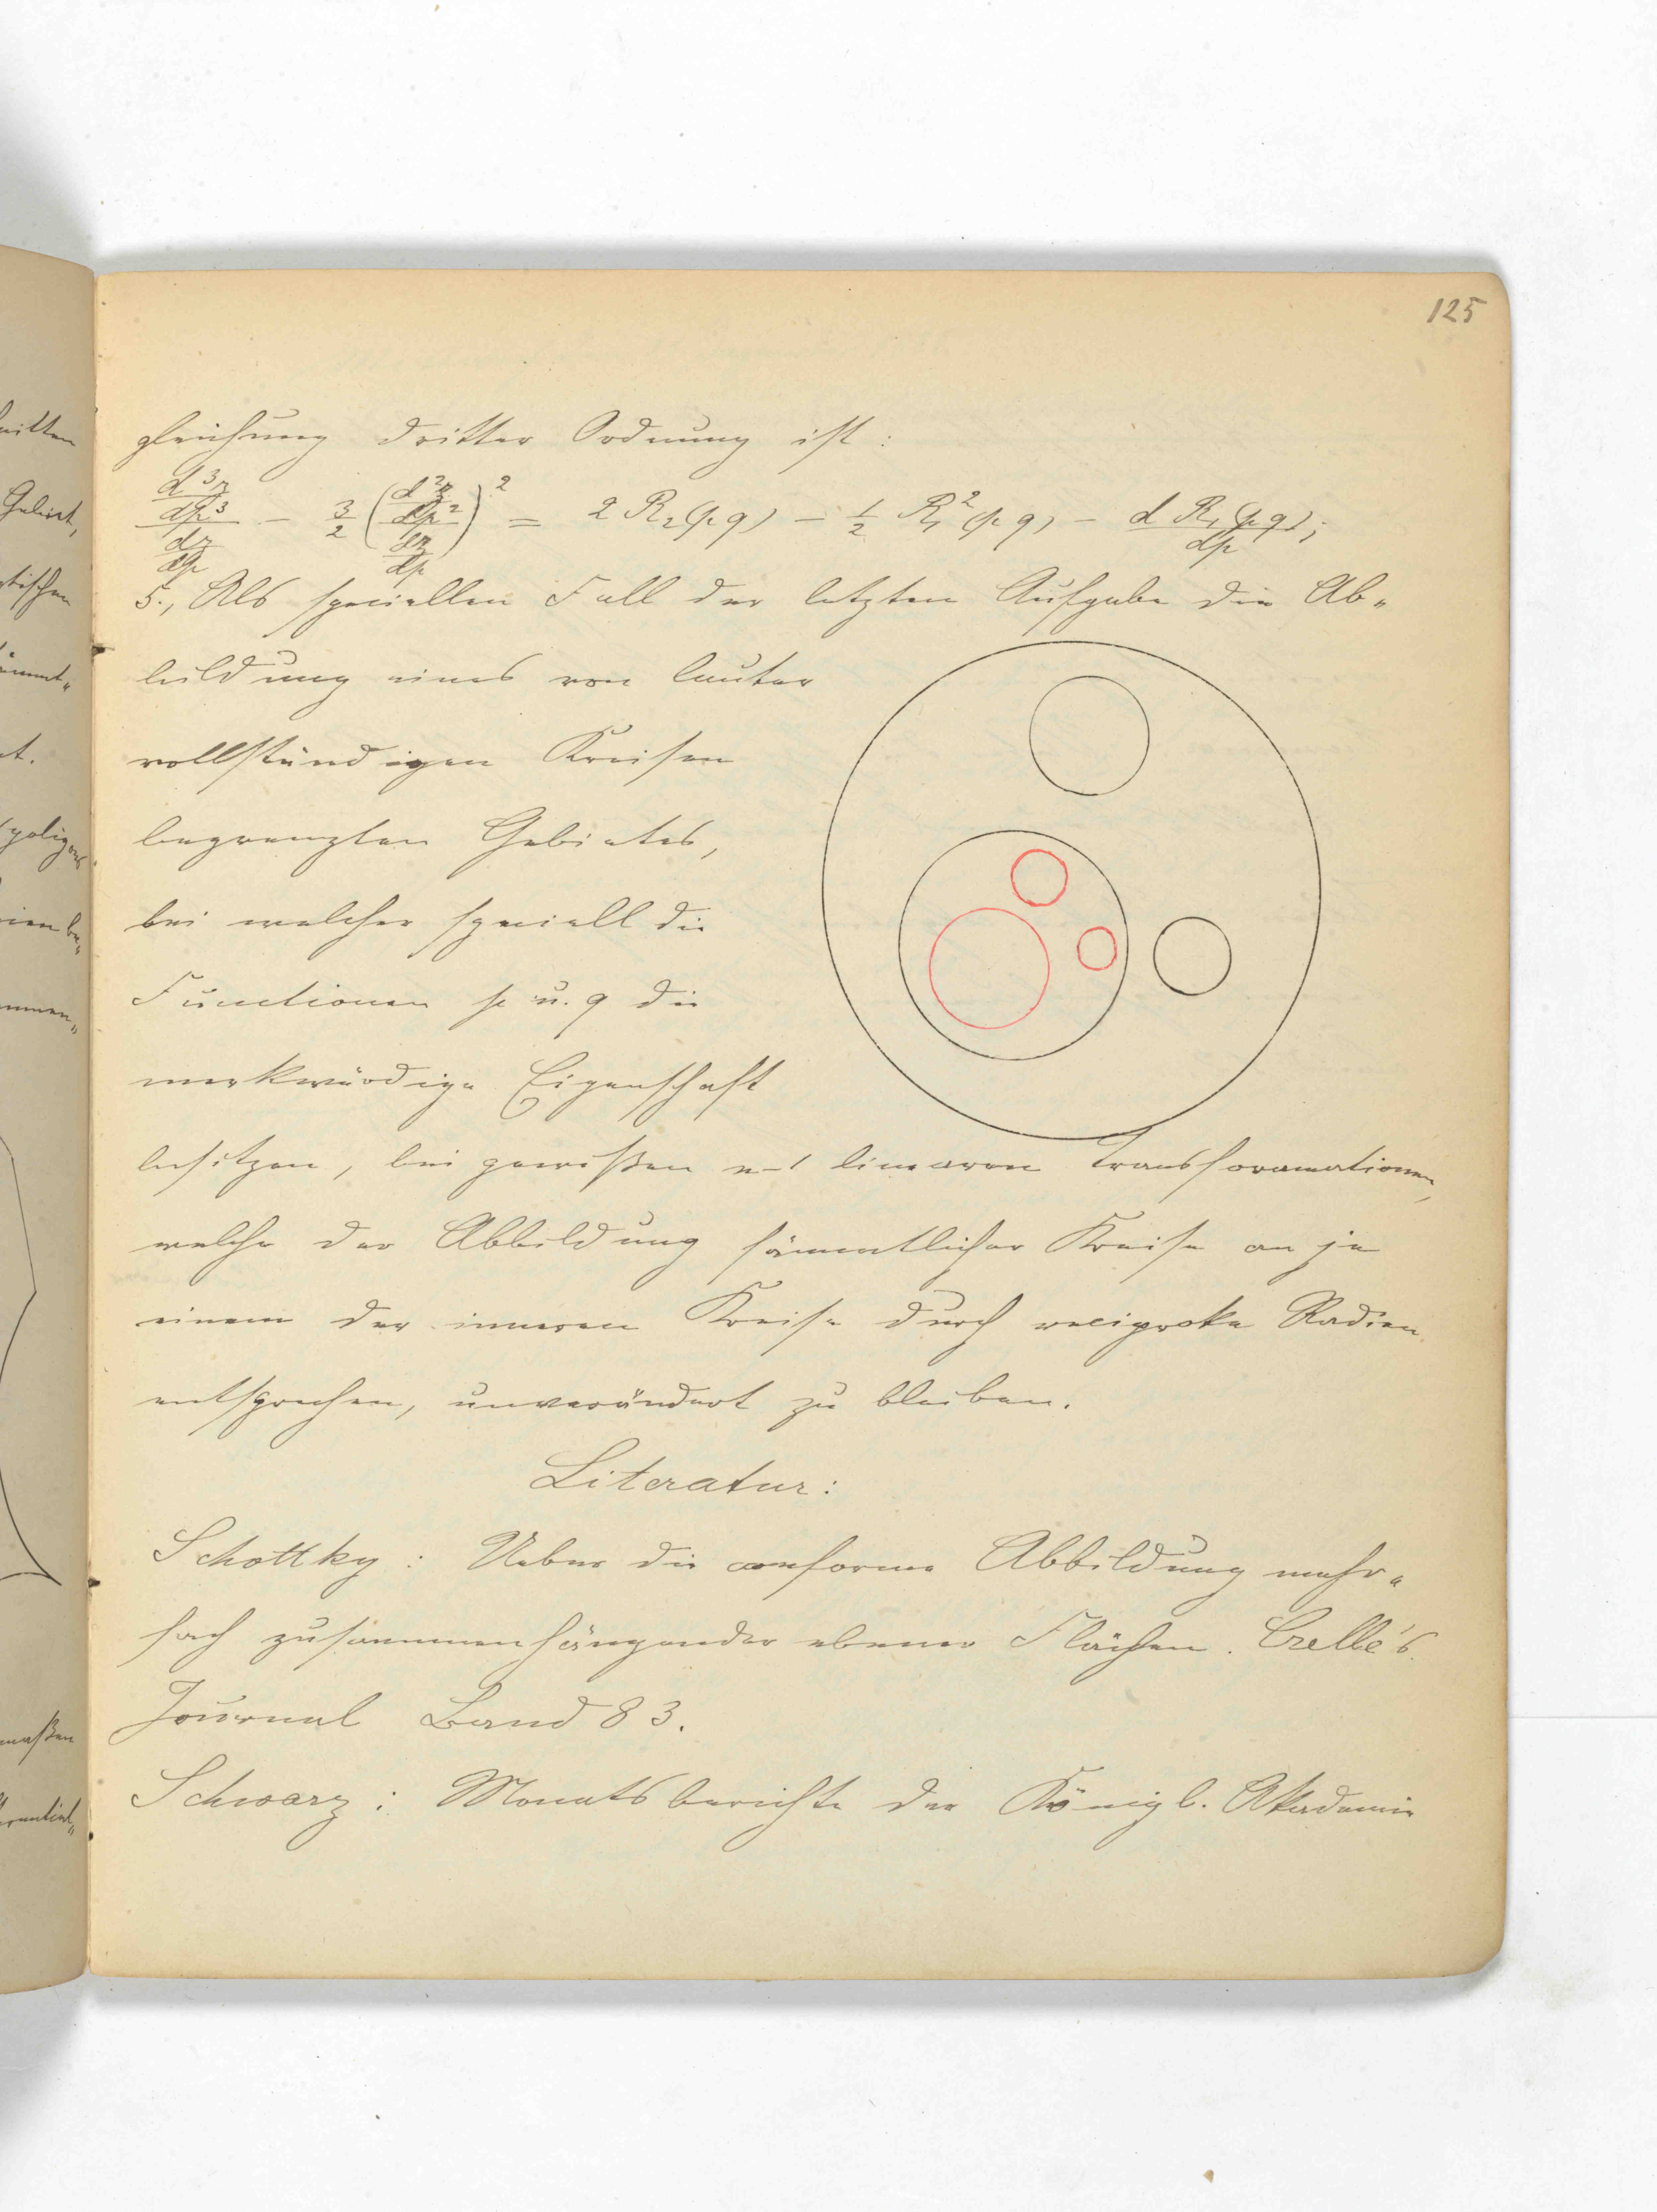 125
gleichung dritter Ordnung ist:
\frac{\frac{d^3η}{dp^3}}{\frac{dη}{dp}} - \frac{3}{2} \left(\frac{\frac{d^2η}{dp^2}}{\frac{dη}{dp}}\right)^2 = 2 R_2(p q) - \frac{1}{2} R_1^2 (p q) - \frac{d R_1(p q)}{dp};
5., Als speciellen Fall der letzten Aufgabe die Ab„
bildung eines von lauter
vollständigen Kreisen
begrenzten Gebietes,
bei welcher speciell die
Functionen p u. q die
merkwürdige Eigenschaft
besitzen, bei gewißen n-1 linearen Transformationen,
welche der Abbildung sämmtlicher Kreise an je
einem der inneren Kreise durch reciproke Radien
entsprechen, unverändert zu bleiben.
Literatur:
Schottky: Ueber die conforme Abbildung mehr„
fach zusammenhängender ebener Flächen. Crelle's
Journal Band 83.
Schwarz: Monatsberichte der Königl. Akademie